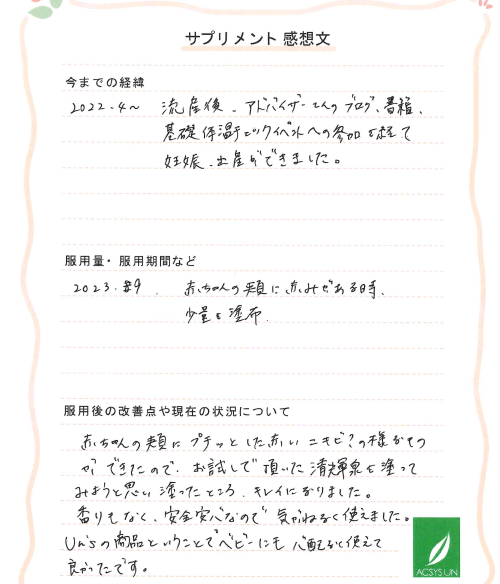 サプリメント 感想文
今までの経緯
2022.4〜 流産後、アドバイザーさんのブログ、書籍、
基礎体温チェックイベントへの参加を経て
妊娠、出産ができました。
服用量・服用期間など
2023.9. 赤ちゃんの頬に赤みがある時、
少量を塗布.
服用後の改善点や現在の状況について
赤ちゃんの頬にプチッとした赤いニキビ?の様なもの
ができたので、お試しで頂いた清輝泉を塗って
みようと思い塗ったところ、キレイになりました。
香りもなく、安全安心なので気がねなく使えました。
Un'sの商品ということでベビーにも心配なく使えて
良かったです。
ACSYSUN